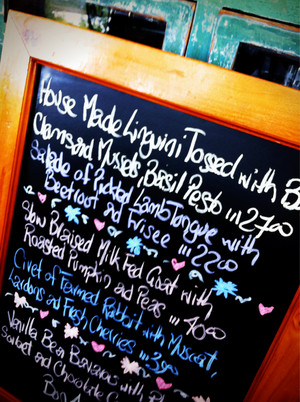 House Made Linguini Tossed with B
Clams and Mussels, Basil Pesto ... 27.00
Salade of Pickled Lamb Tongue with
Beetroot and Frisee ... 22.00
Slow Braised Milk Fed Goat with
Roasted Pumpkin and Peas ... 40.00
Civet of Farmed Rabbit with Muscat,
Lardons and Fresh Cherries ... 39.00
Vanilla Bean Bavarois with
Sorbet and Chocolate